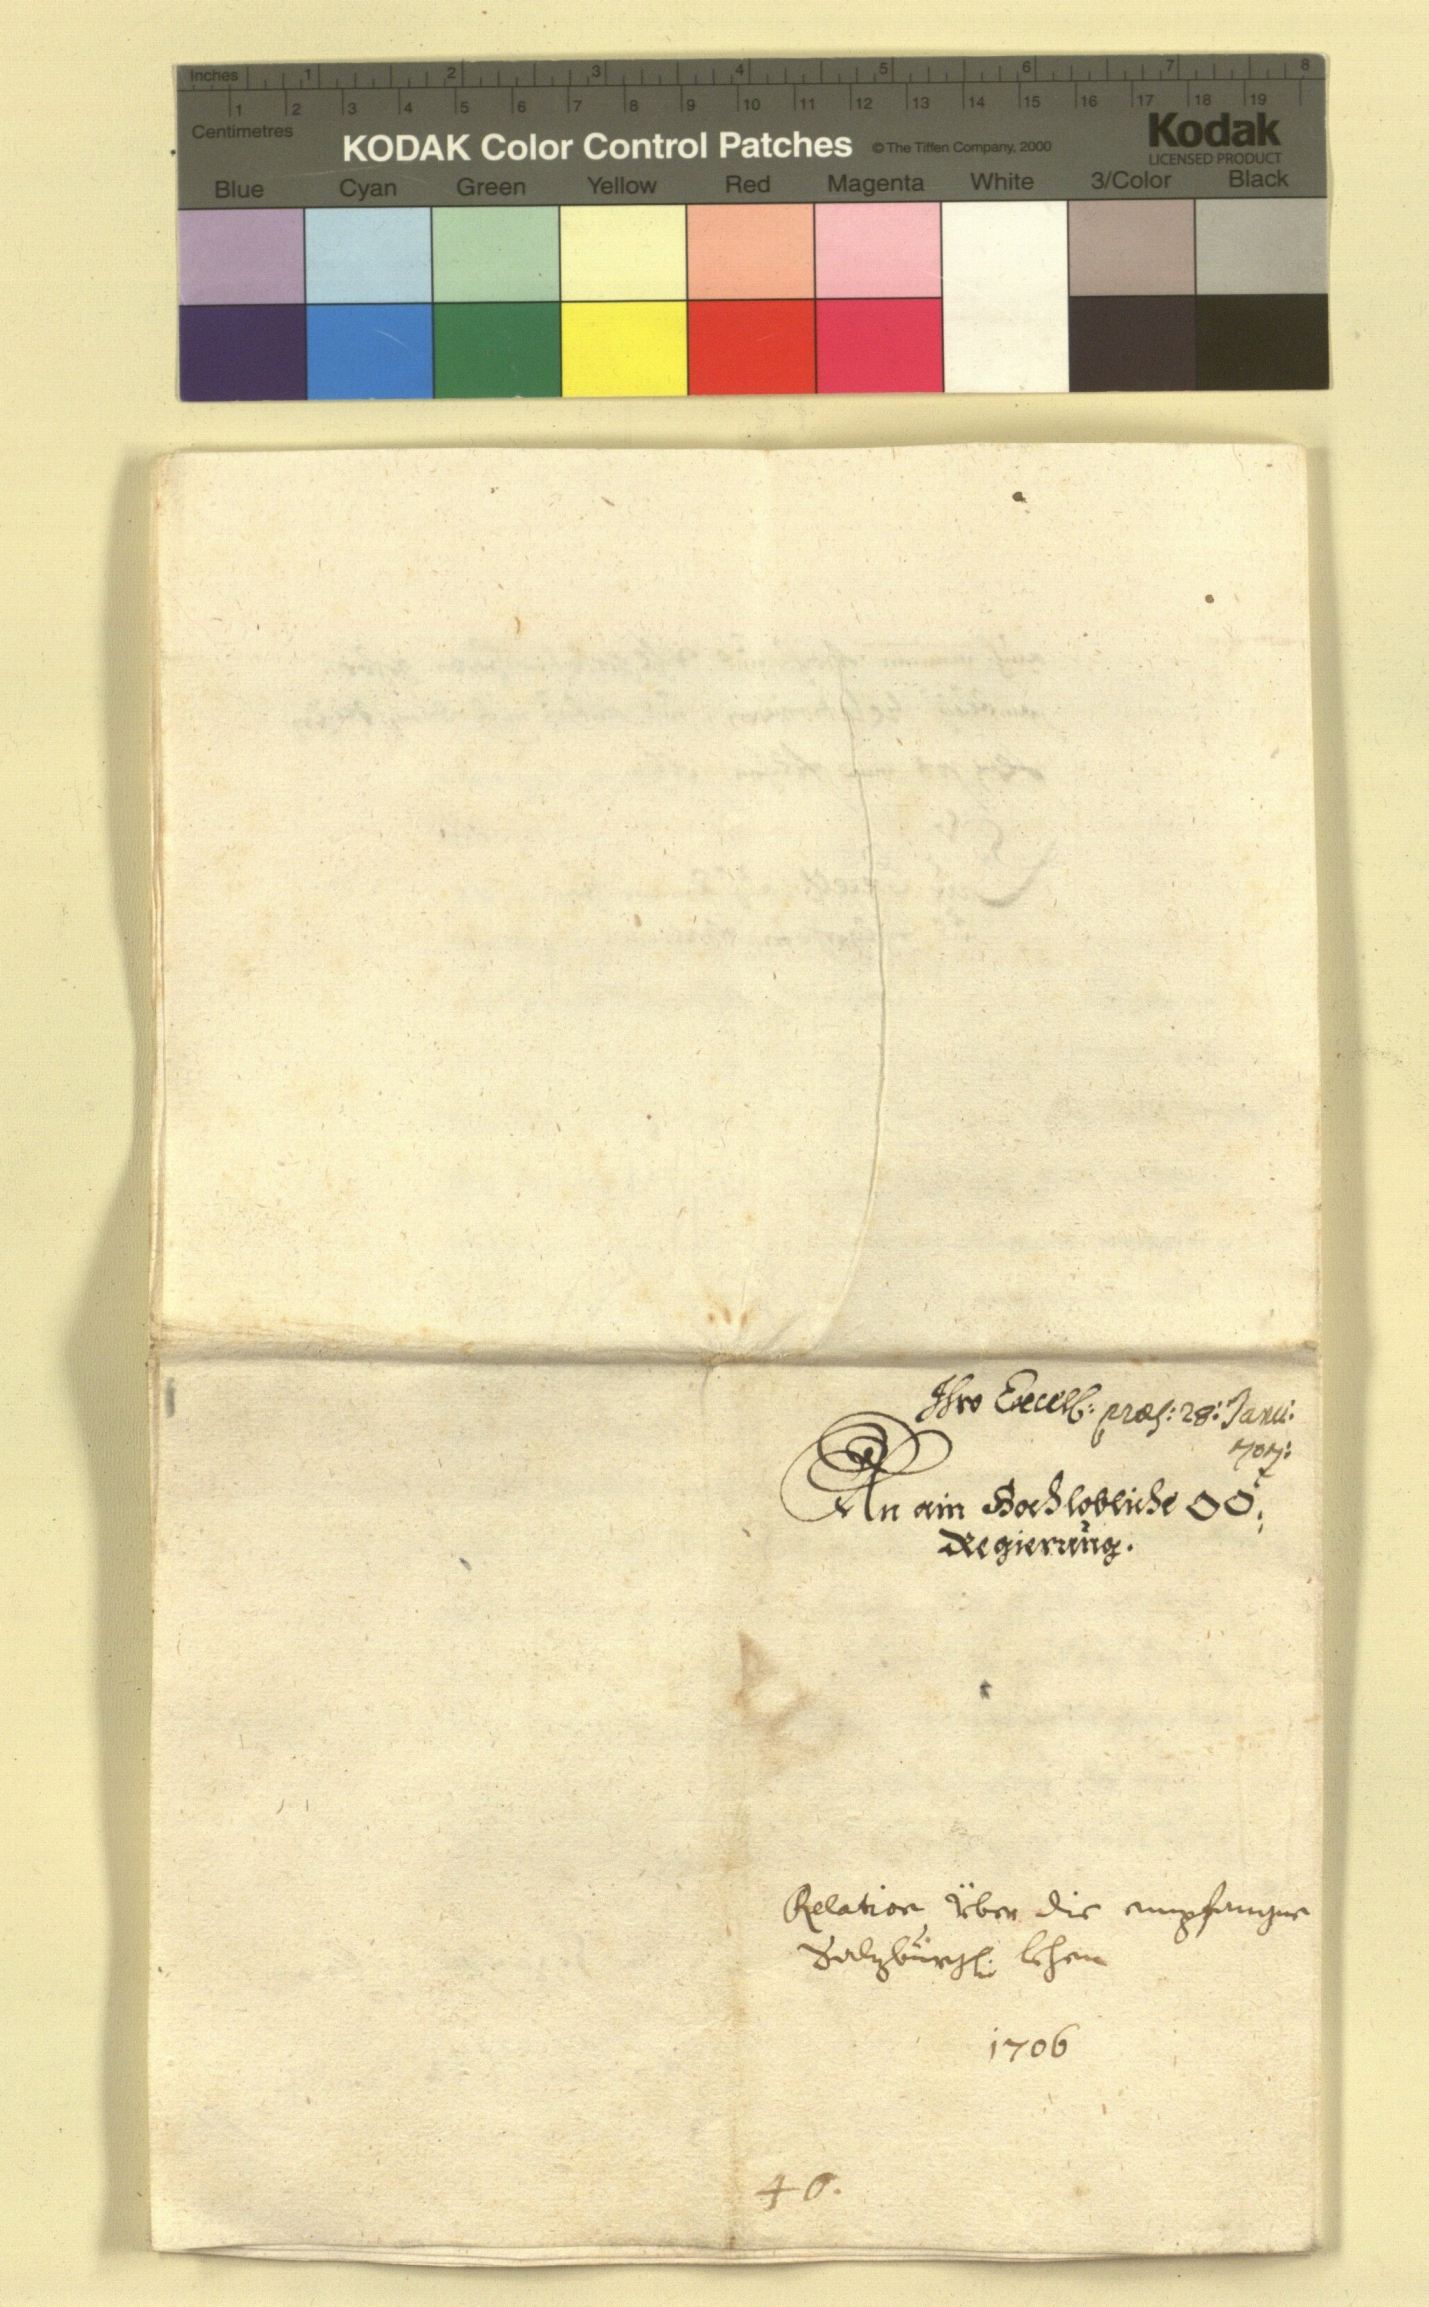 Inches 1 2 3 4 5 6 7 8
1 2 3 4 5 6 7 8 9 10 11 12 13 14 15 16 17 18 19
Centimetres
KODAK Color Control Patches © The Tiffen Company, 2000 Kodak
LICENSED PRODUCT
Blue Cyan Green Yellow Red Magenta White 3/Color Black
Ihro Excell: præs: 28: Janu:
707:
An ain Hochlobliche OÖ:
Regierung.
Relation Über die empfangne
Salzburgl: lehen
1706
40.